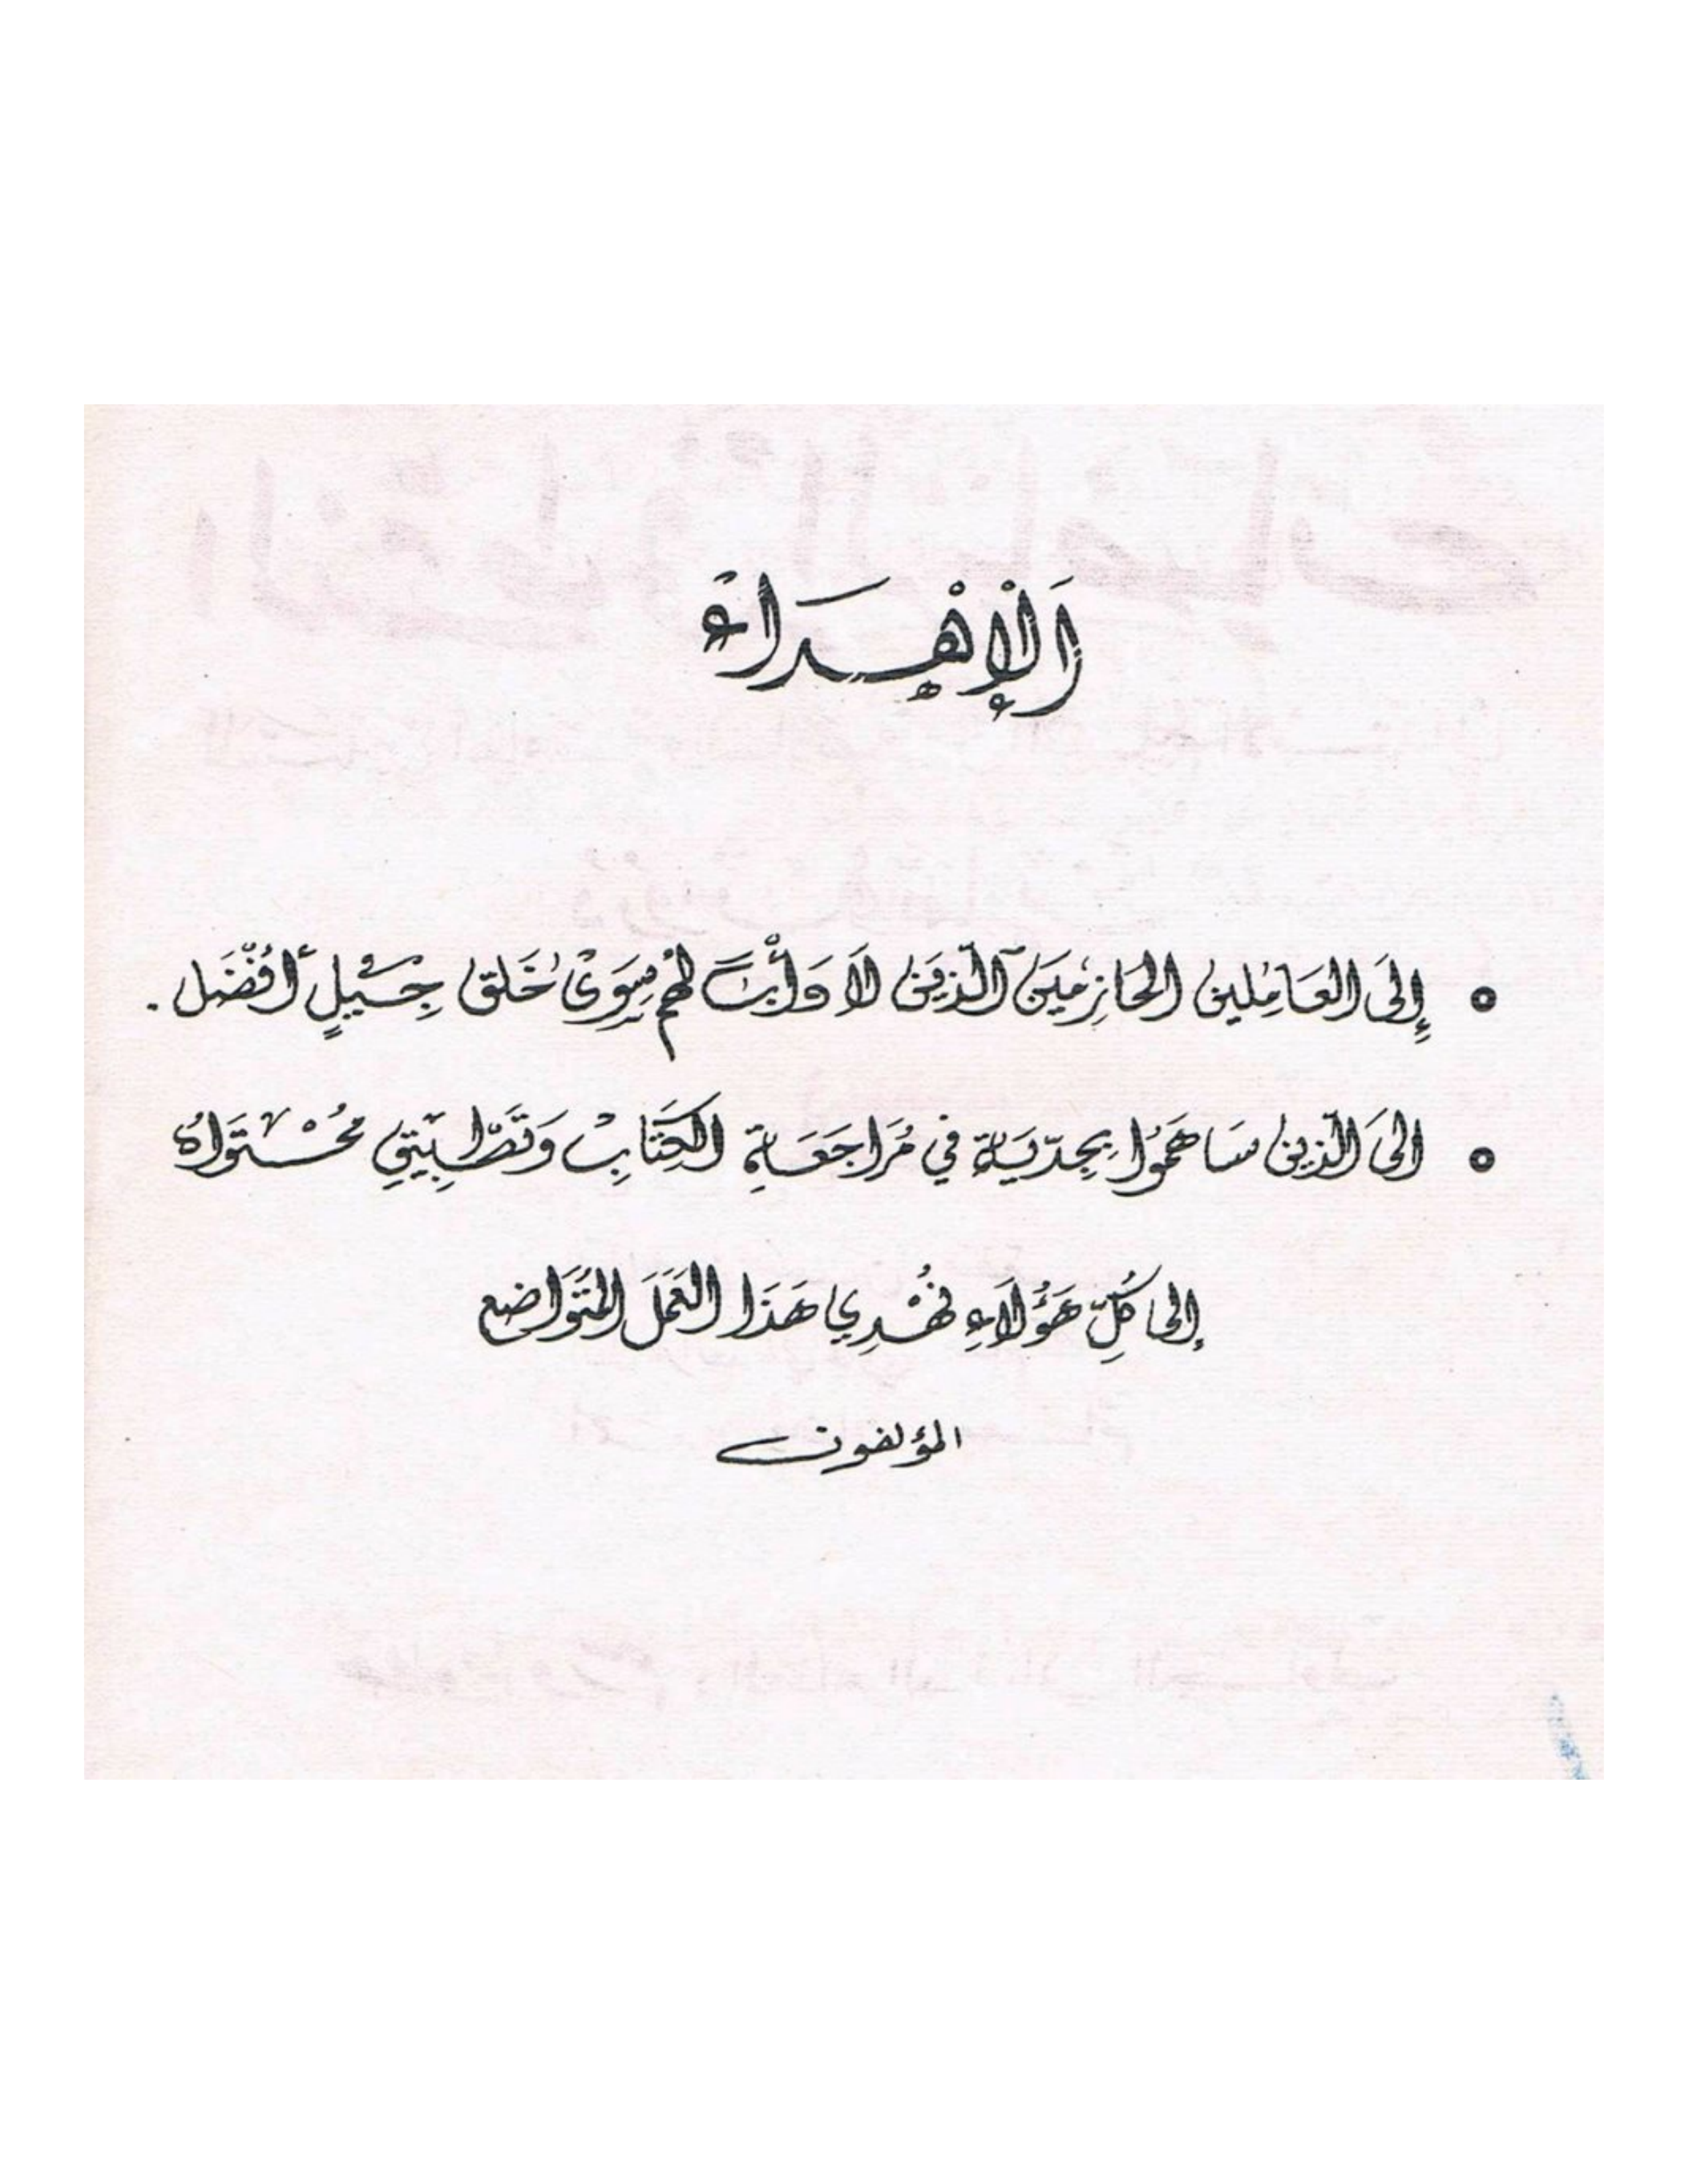 اَلْإِهْدَاءْ
• إِلَى العَامِلين الحَازِمَين الّذِيَن لاَ وَأْبًَ لهُمْ سِوَىْ خَلق جِيْلٍ أفْضَل .
• الىَ الّذين سَاهَمُوا بِجِدّيَة في مُرَاجَعَةِ الكِتَابِ وَتَطْبِيق مُحْتَوَاه
إلى كُلِّ هَؤُلاَءِ نُهْدِي هَذَا العَمَلَ المُتَوَاضع
المؤلفون